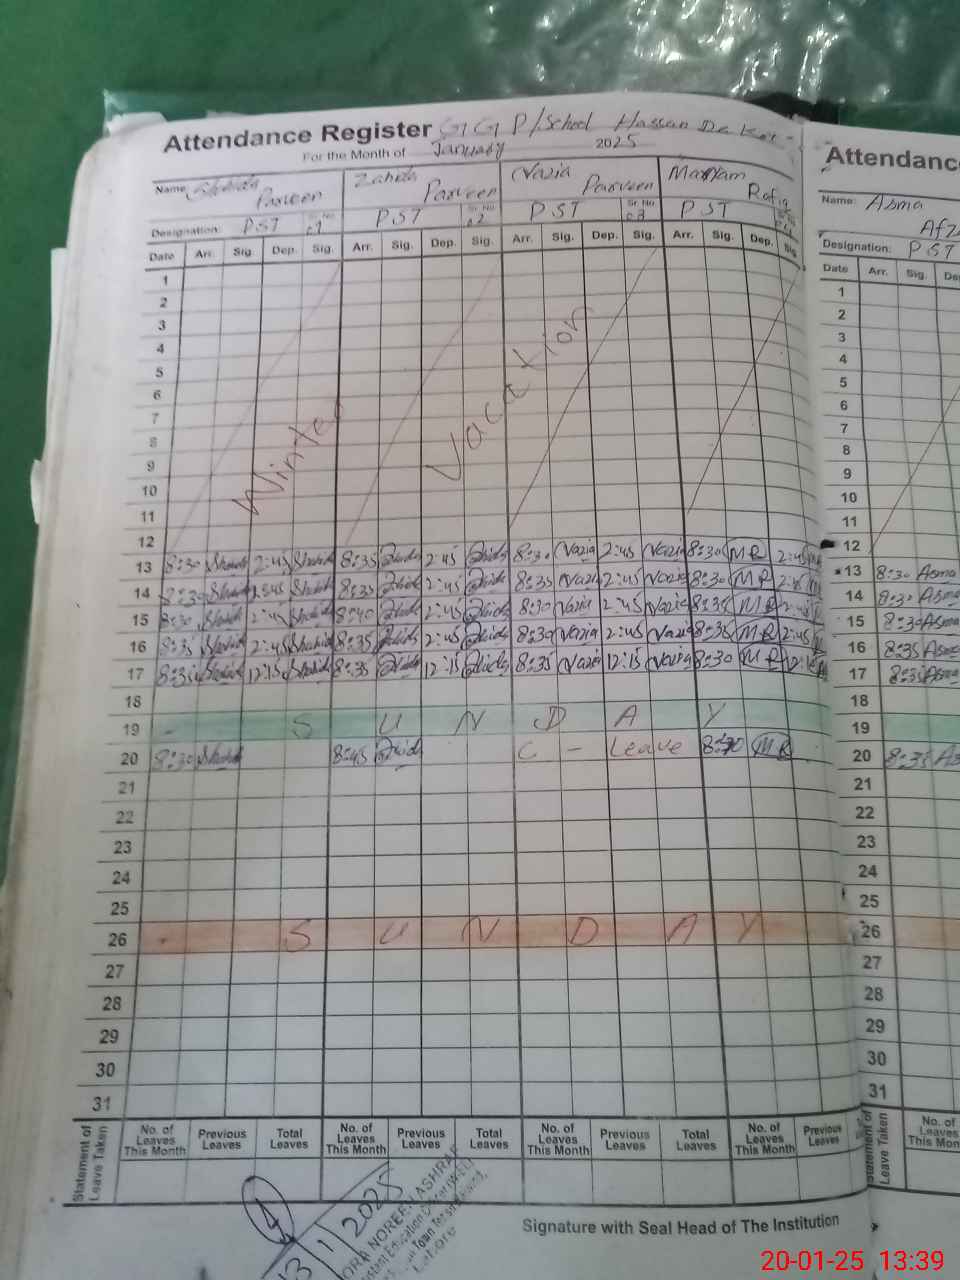 Attendance Register G G P/School Hassan De
For the Month of January 2025
Name Shahida Parveen Zahida Parveen Nazia Parveen Maryam Rafiq
Designation: PST Sr. No 01 PST Sr. No 02 PST Sr. No 03 PST
Date Arr. Sig. Dep. Sig. Arr. Sig. Dep. Sig. Arr. Sig. Dep. Sig. Arr. Sig. Dep. Sig.
1
2
3
4
5
6
7
8
9
10
11
12
Winter Vacation
13 8:30 Shahid 2:45 Shahid 8:35 Zahida 2:45 Zahida 8:30 Nazia 2:45 Nazia 8:30 MR 2:45
14 8:30 Shahid 2:45 Shahid 8:35 Zahida 2:45 Zahida 8:35 Nazia 2:45 Nazia 8:30 MR 2:45
15 8:30 Shahid 2:45 Shahid 8:40 Zahida 2:45 Zahida 8:30 Nazia 2:45 Nazia 8:35 MR 2:45
16 8:35 Shahid 2:45 Shahid 8:35 Zahida 2:45 Zahida 8:30 Nazia 2:45 Nazia 8:35 MR 2:45
17 8:35 Shahid 12:15 Shahid 8:35 Zahida 12:15 Zahida 8:35 Nazia 12:15 Nazia 8:30 MR 12:15
18
19 - S U N D A Y
20 8:30 Shahid 8:45 Zahida C - Leave 8:30 MR
21
22
23
24
25
26 S U N D A Y
27
28
29
30
31
Statement of Leave Taken
No. of Leaves This Month Previous Leaves Total Leaves No. of Leaves This Month Previous Leaves Total Leaves No. of Leaves This Month Previous Leaves Total Leaves No. of Leaves This Month Previous Leaves
4
13 1 2025
NOREEN ASHRAF
Education Officer
Town
Lahore
Signature with Seal Head of The Institution
Attendance
Name: Asma
Designation: PST
Date Arr. Sig.
1
2
3
4
5
6
7
8
9
10
11
12
13 8:30 Asma
14 8:30 Asma
15 8:30 Asma
16 8:35 Asma
17 8:35 Asma
18
19
20 8:35
21
22
23
24
25
26
27
28
29
30
31
Statement of Leave Taken
No. of Leaves This Month
20-01-25 13:39